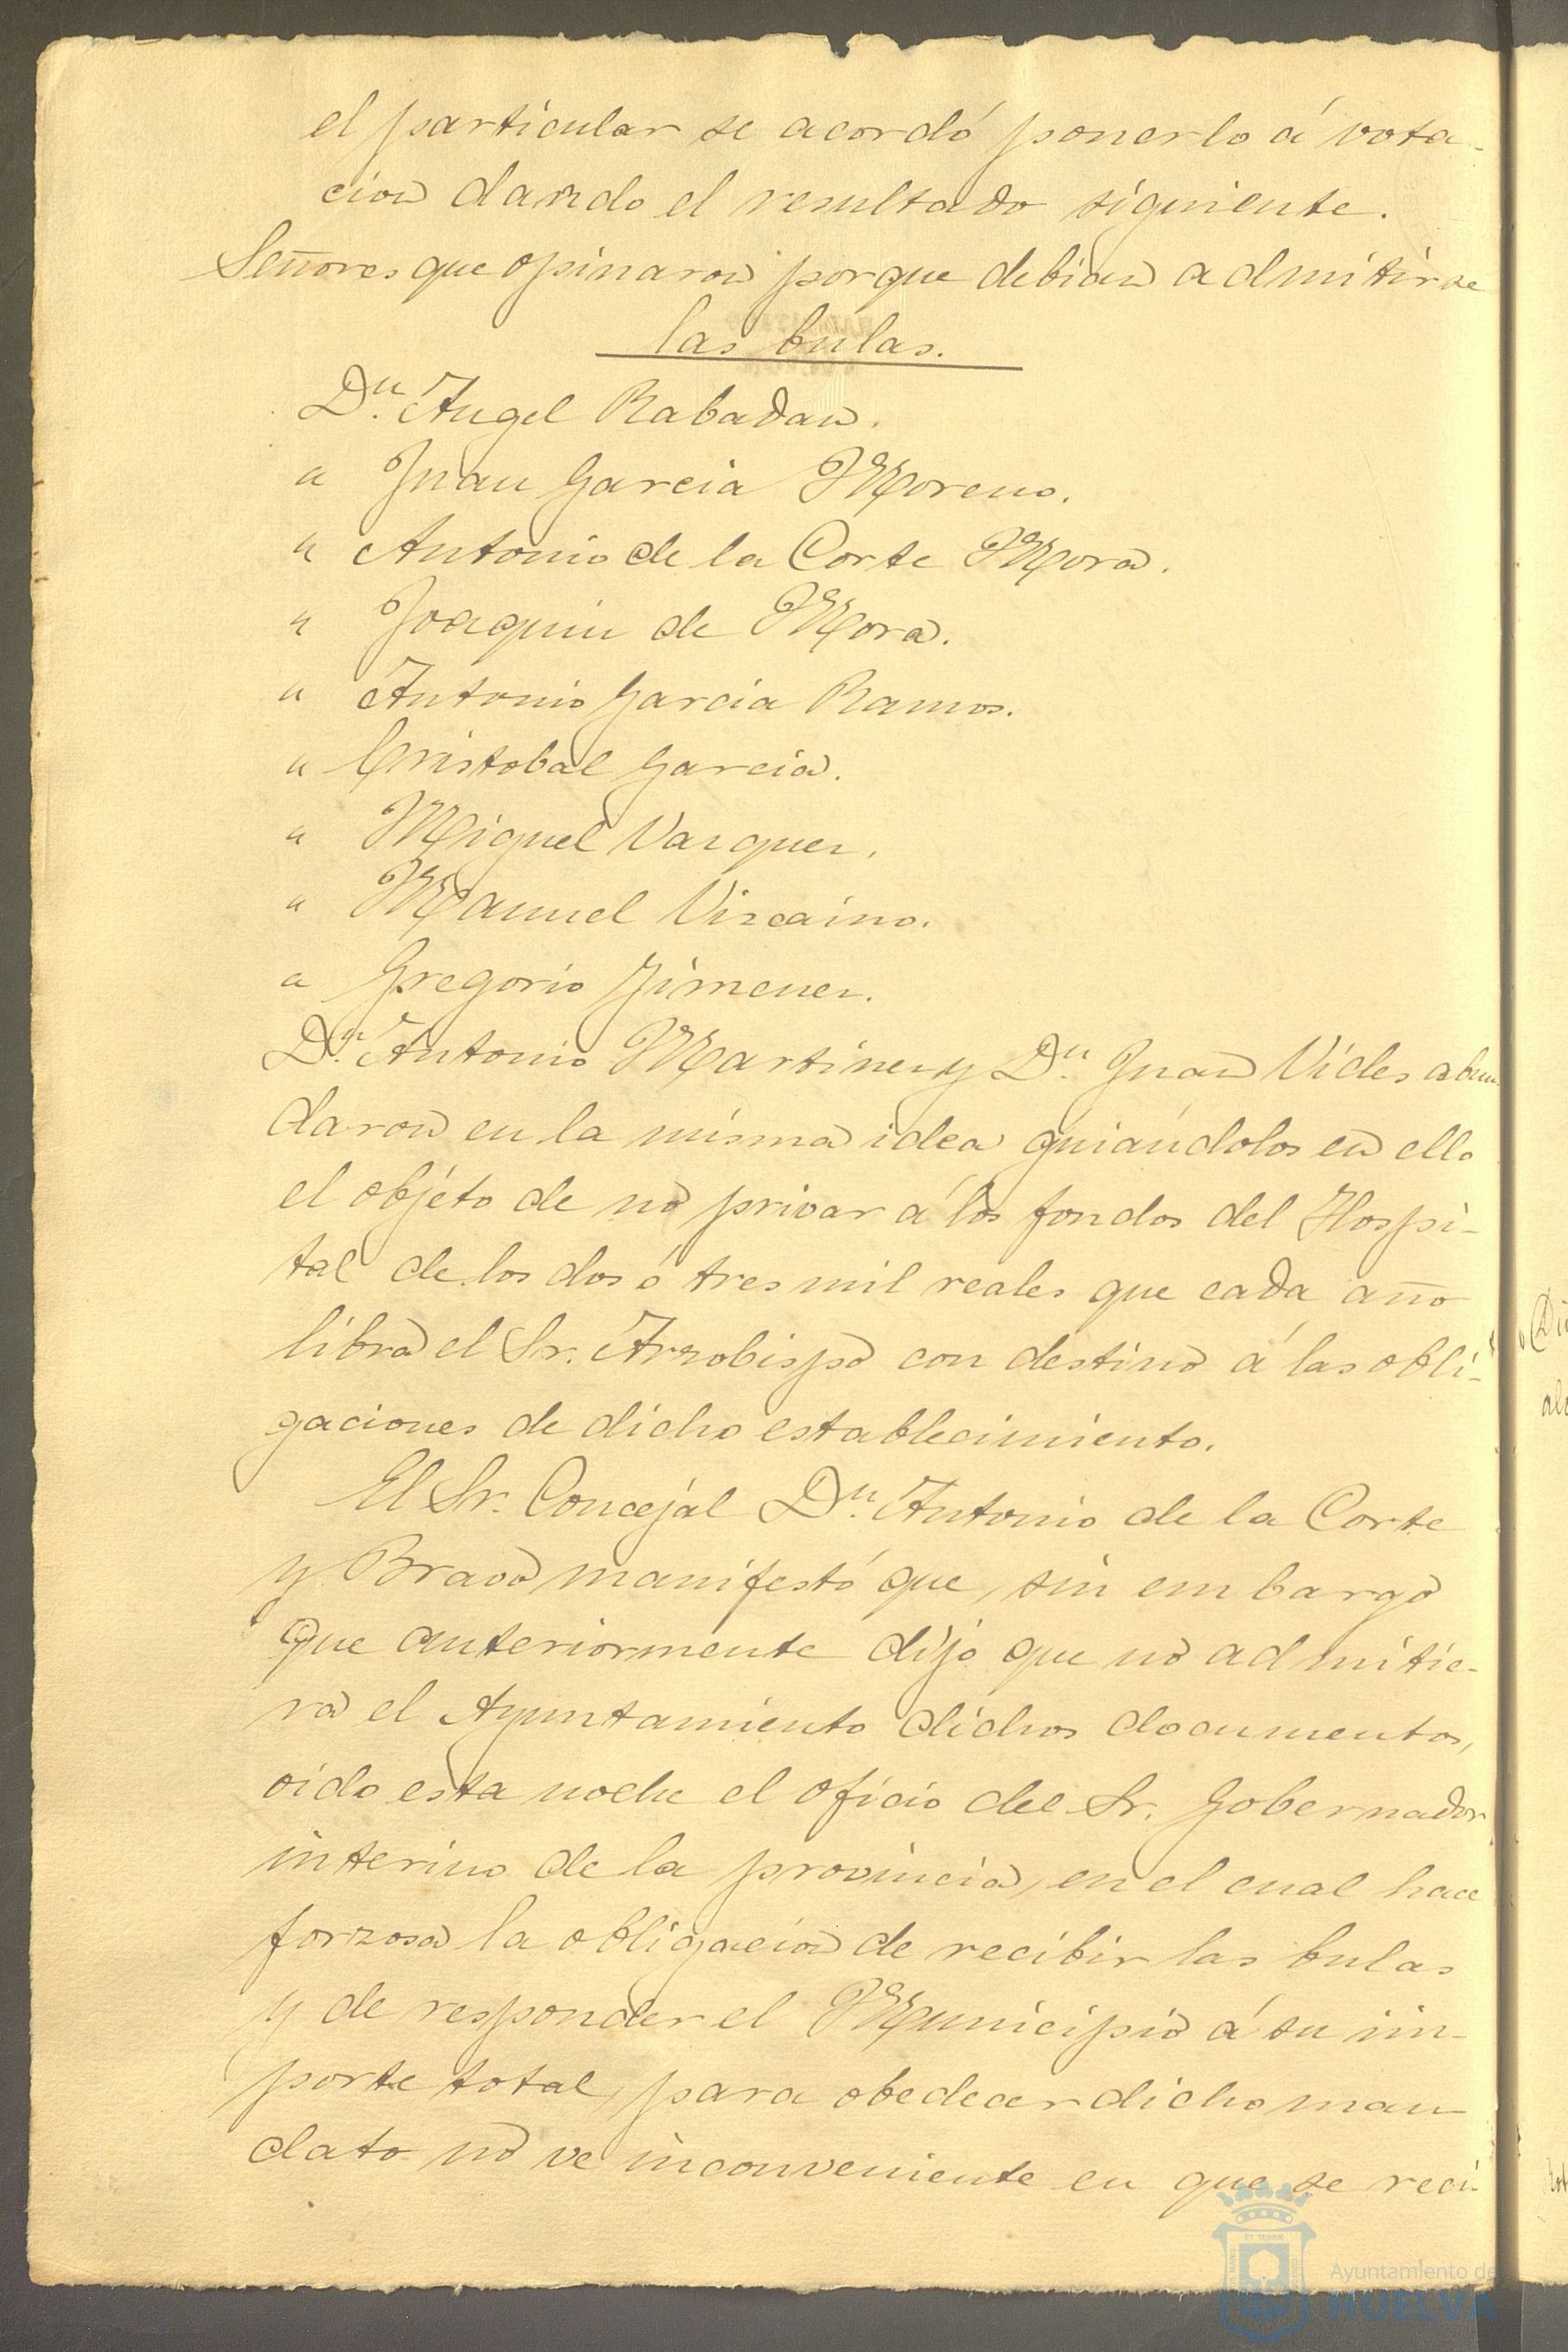 el particular se acordó ponerlo á vota-
cion dando el resultado siguiente.
Señores que opinaron porque debian admitirse
las bulas.
Dn. Angel Rabadan.
" Juan Garcia Moreno.
" Antonio de la Corte Mora.
" Joaquin de Mora.
" Antonio Garcia Ramos.
" Cristobal Garcia.
" Miguel Vazquez.
" Manuel Vizcaino.
" Gregorio Jimenez.
Dn. Antonio Martinez y Dn. Juan Vides abun
daron en la misma idea guiándolos en ello
el objéto de no privar á los fondos del Hospi-
tal de los dos ó tres mil reales que cada año
libra el Sr. Arzobispo con destino á las obli-
gaciones de dicho establecimiento.
El Sr. Concejal Dn. Antonio de la Corte
y Bravo manifestó que, sin embargo
que anteriormente dijo que no admitie-
ra el Ayuntamiento dichos documentos,
oido esta noche el oficio del Sr. Gobernador
interino de la provincia, en el cual hace
forzosa la obligacion de recibir las bulas
y de responder el Municipio á su im-
porte total, para obedecer dicho man-
dato no ve inconveniente en que se reci-
Ayuntamiento de
HUELVA